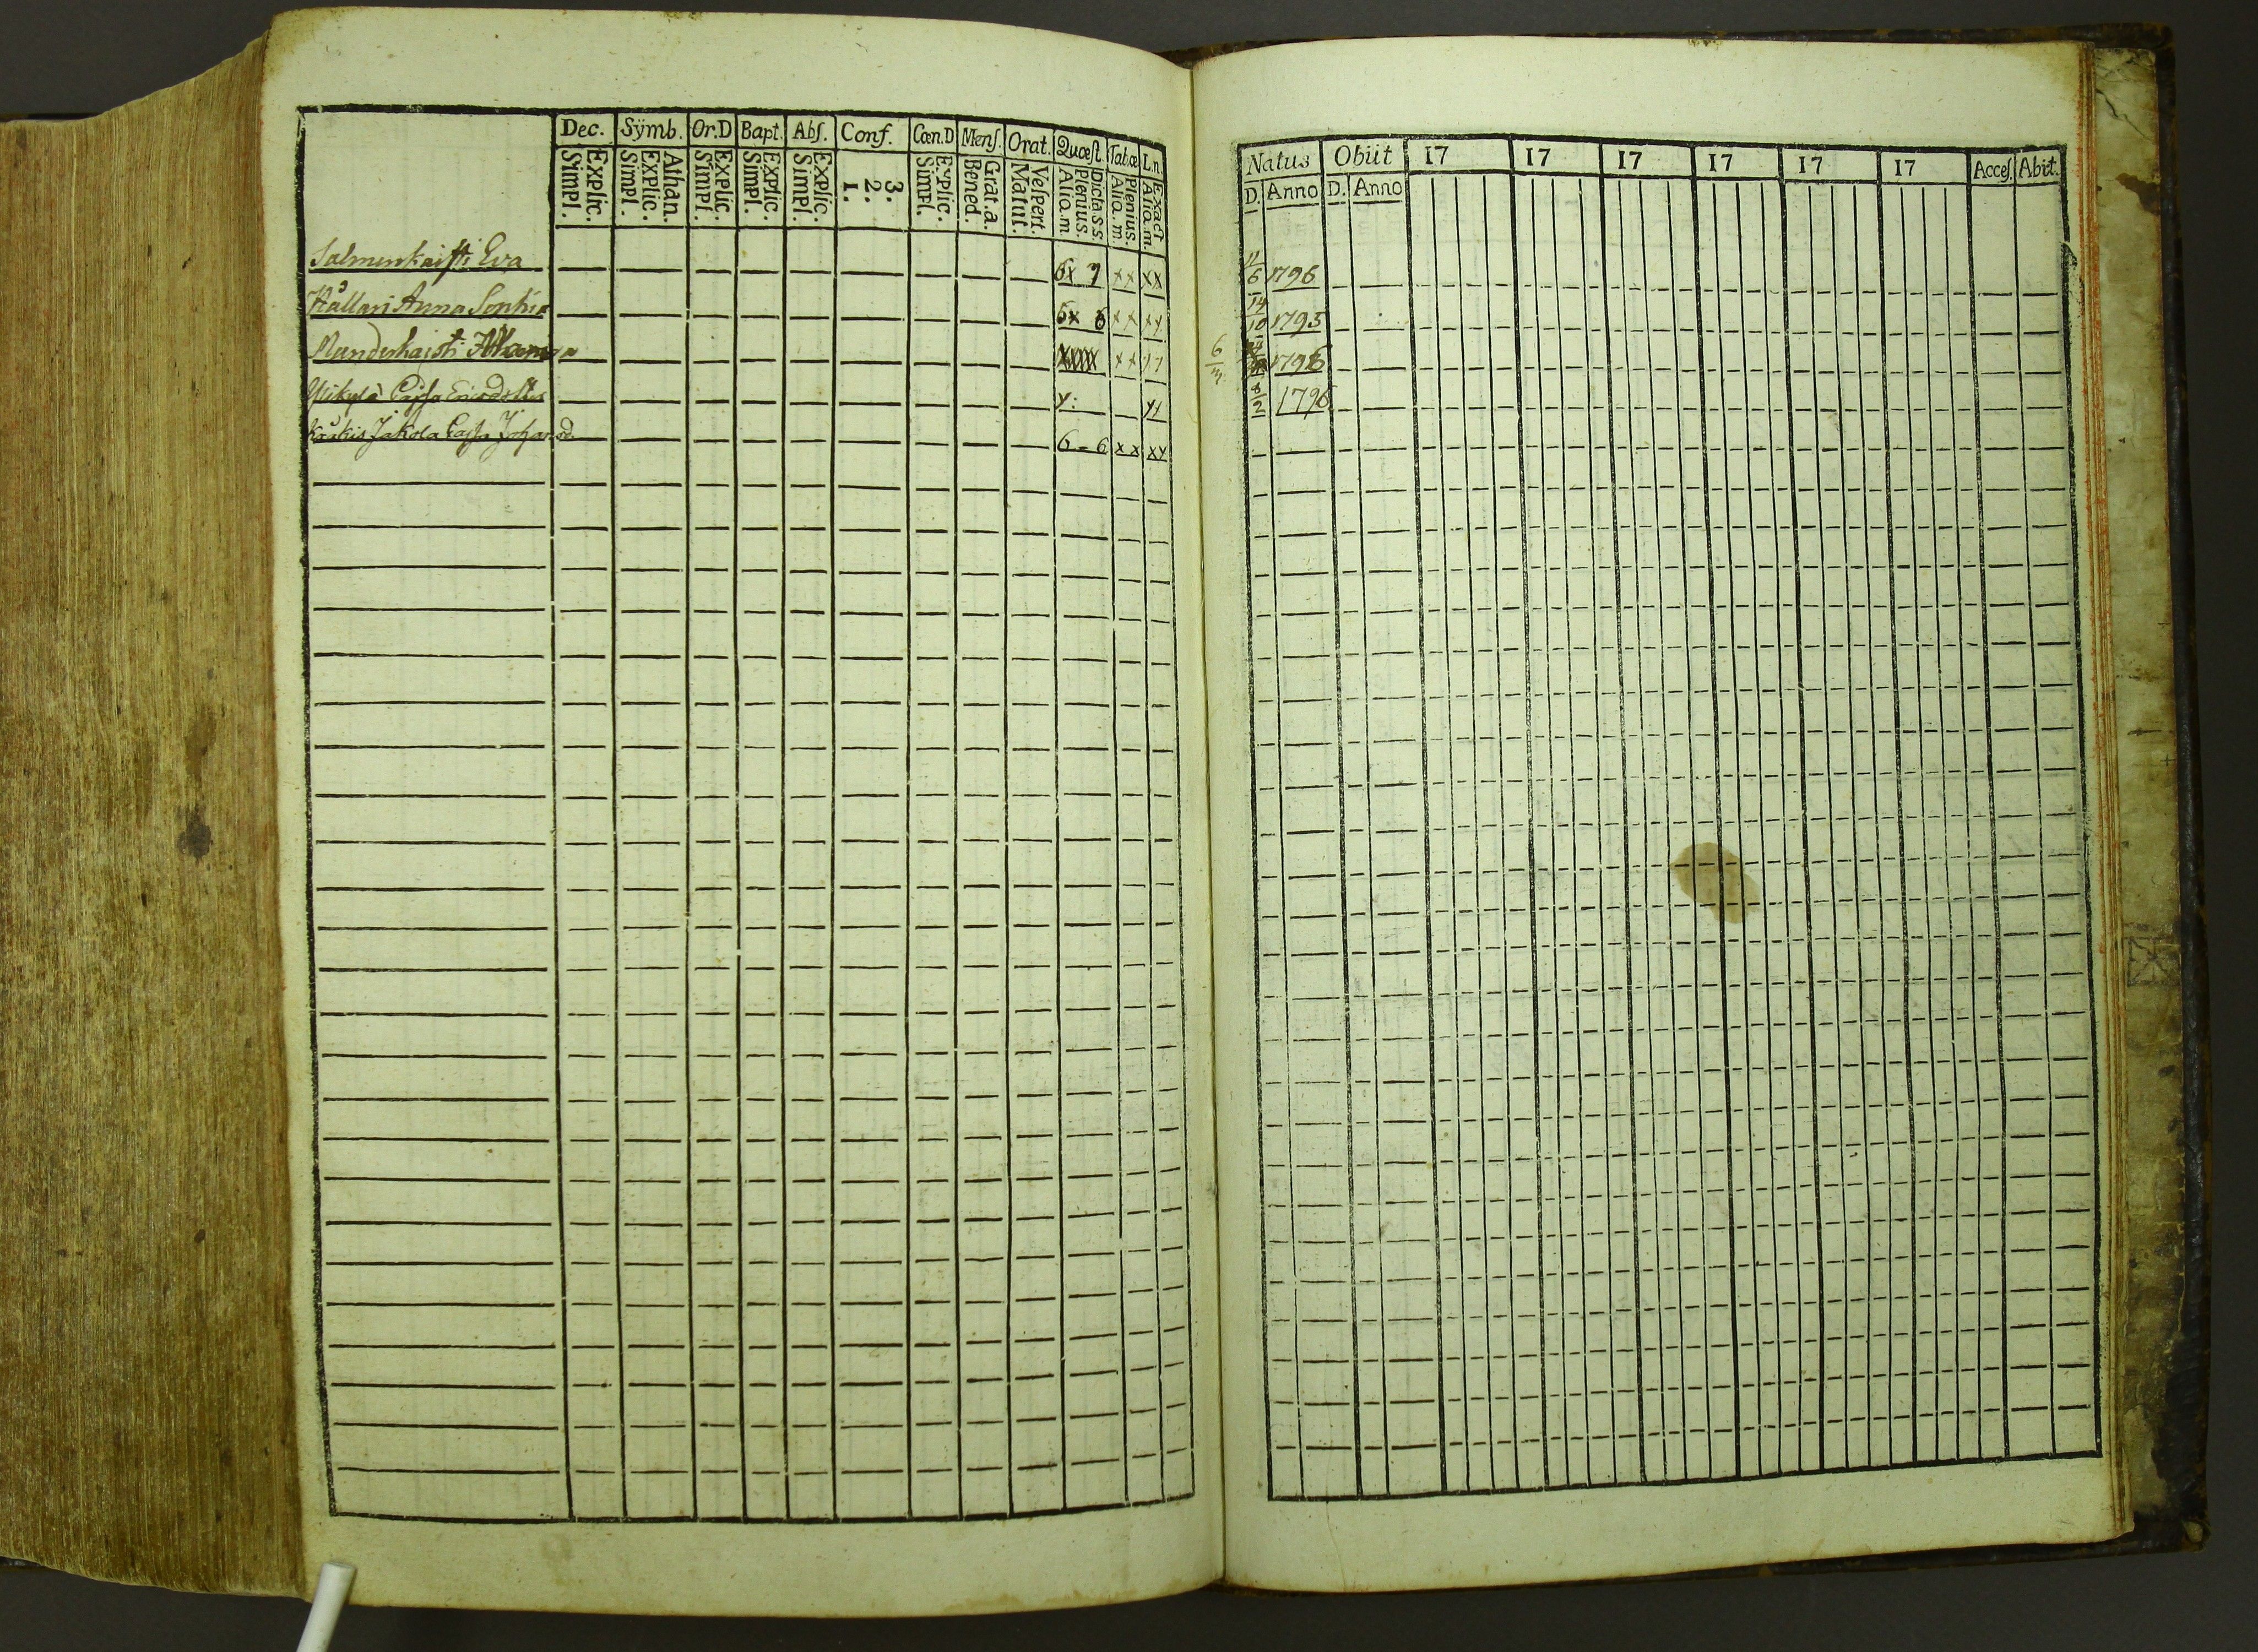 Dec. Sÿmb. Or.D Bapt. Abſ. Conf. Cœn.D Menſ. Orat. Quœſt. Tabœ L.n.
Explic. Simpl. Athan. Explic. Simpl. Explic. Simpl. Explic. Simpl. Explic. Simpl. 3. 2. 1. Explic. Simpl. Grat.a. Bened. Veſpert. Matut. Dicta.s.s. Plenius. Aliq.m. Plenius. Aliq.m. Exact Aliq.m.
Salmenkaisti Eva 6x 7 xx xx
Kållari Anna Sophia 5x 6 xx xy
xxxx xx
Caisa Ericsdotter y: yy
Jakola Caisa Johansd. 6 - 6 xx xy
Natus Obiit 17 17 17 17 17 17 Acceſ. Abit.
D. Anno D. Anno
11/6 1796
14/10 1795
6/3 1796
8/2 1796